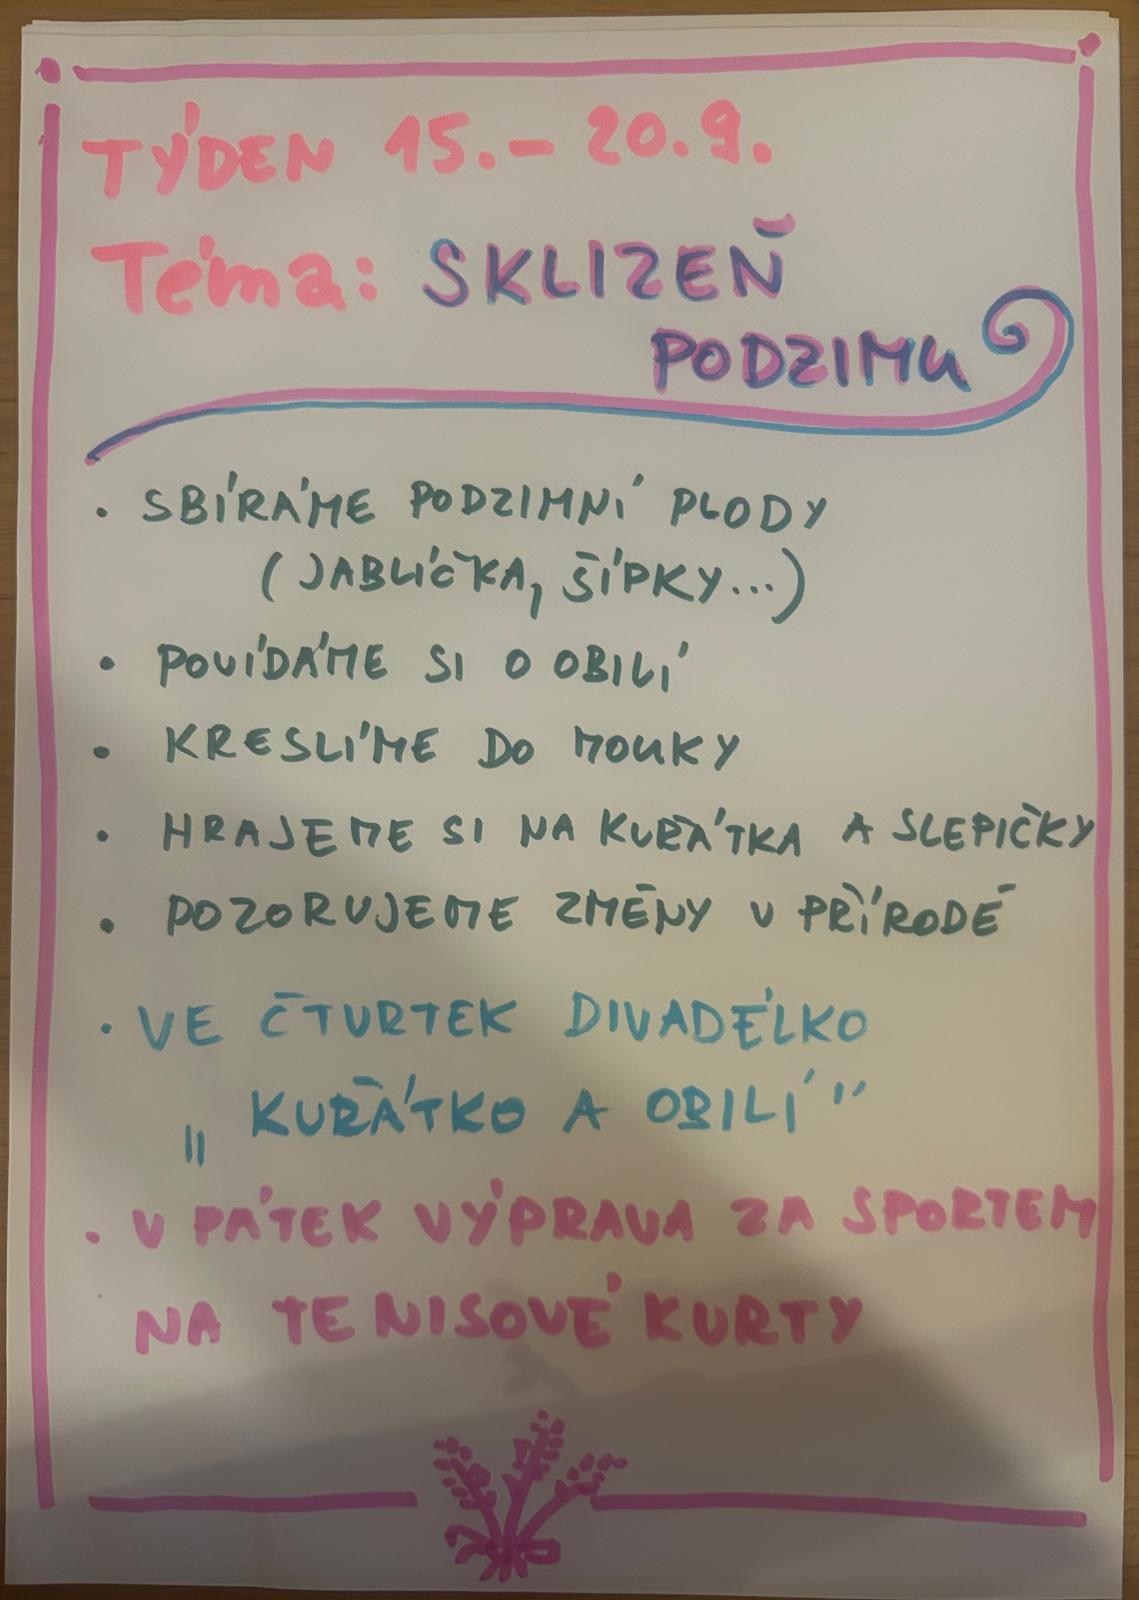 TÝDEN 15.- 20.9.
Téma: SKLIZEŇ
PODZIMU
• SBÍRÁME PODZIMNÍ PLODY
(JABLÍČKA, ŠÍPKY...)
• POVÍDÁME SI O OBILÍ
• KRESLÍME DO MOUKY
• HRAJEME SI NA KUŘÁTKA A SLEPIČKY
• POZORUJEME ZMĚNY V PŘÍRODĚ
• VE ČTVRTEK DIVADÉLKO
„ KUŘÁTKO A OBILÍ"
• V PÁTEK VÝPRAVA ZA SPORTEM
NA TENISOVÉ KURTY